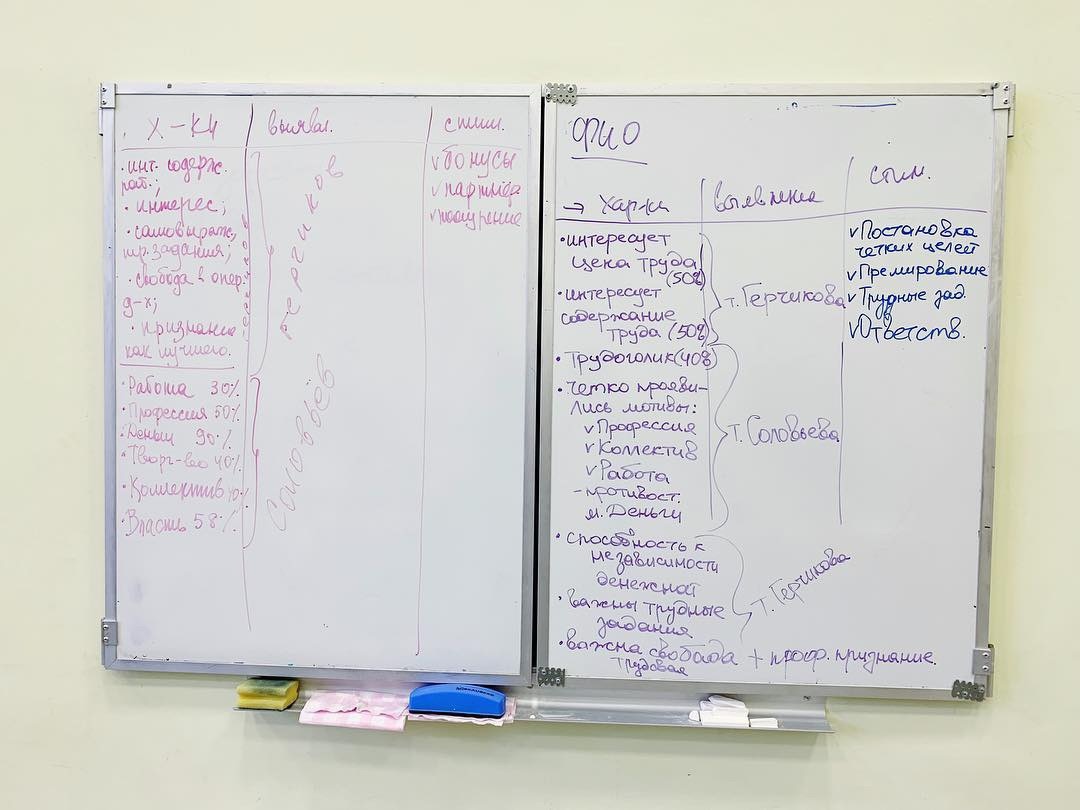 Х-КИ
выявл.
стим.
• инт. содерж.
раб.;
• интерес;
• самовыраж,
тр. задания;
• свобода в опер.
д-х;
• признание
как лучшего.
Герчиков
• Работа 30%
• Профессия 50%
• Деньги 90%
• Творч-во 40%
• Коллектив 40%
• Власть 58%
Соловьёв
v бонусы
v поощрение
ФИО
→ Хар-ки
выявление
стим.
• интересует
цена труда
(50%)
• интересует
содержание
труда (50%)
т. Герчикова
• Трудоголик (40%)
• четко прояви-
лись мотивы:
v Профессия
v Коллектив
v Работа
- противост.
м. Деньги
т. Соловьева
• способность к
независимости
денежной
• важны трудные
задания
• важна свобода + проф. признание.
трудовая
т. Герчикова
v Постановка
четких целей
v Премирование
v Трудные зад.
v Ответств.